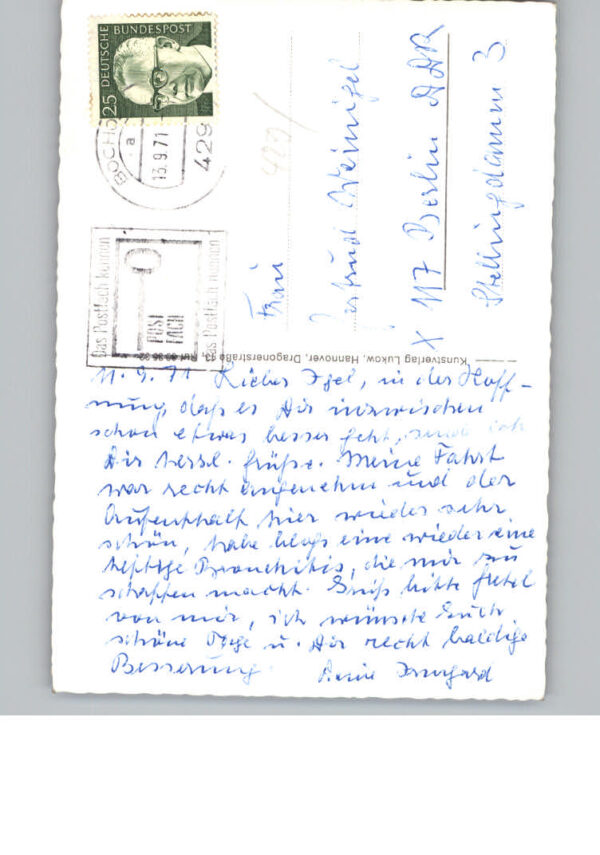 25 DEUTSCHE BUNDESPOST
BOCHO
a
13.9.71
429
Das Postfach kennen
POST
FACH
das Postfach kennen
429/
Frau
Gertrud
X 117 Berlin DDR
Stellingdamm 3
Kunstverlag Lukow, Hannover, Dragonerstraße 13, Ruf
11.9.71 Lieber Igel, in der Hoff-
nung, daß es Dir inzwischen
schon etwas besser geht, sende ich
Dir herzl. Grüße. Meine Fahrt
war recht angenehm und der
Aufenthalt hier wieder sehr
schön, habe bloß eine wieder eine
heftige Bronchitis, die mir zu
schaffen macht. Grüß bitte
von mir, ich wünsche Euch
schöne Tage u. Dir recht baldige
Besserung. Deine Irmgard